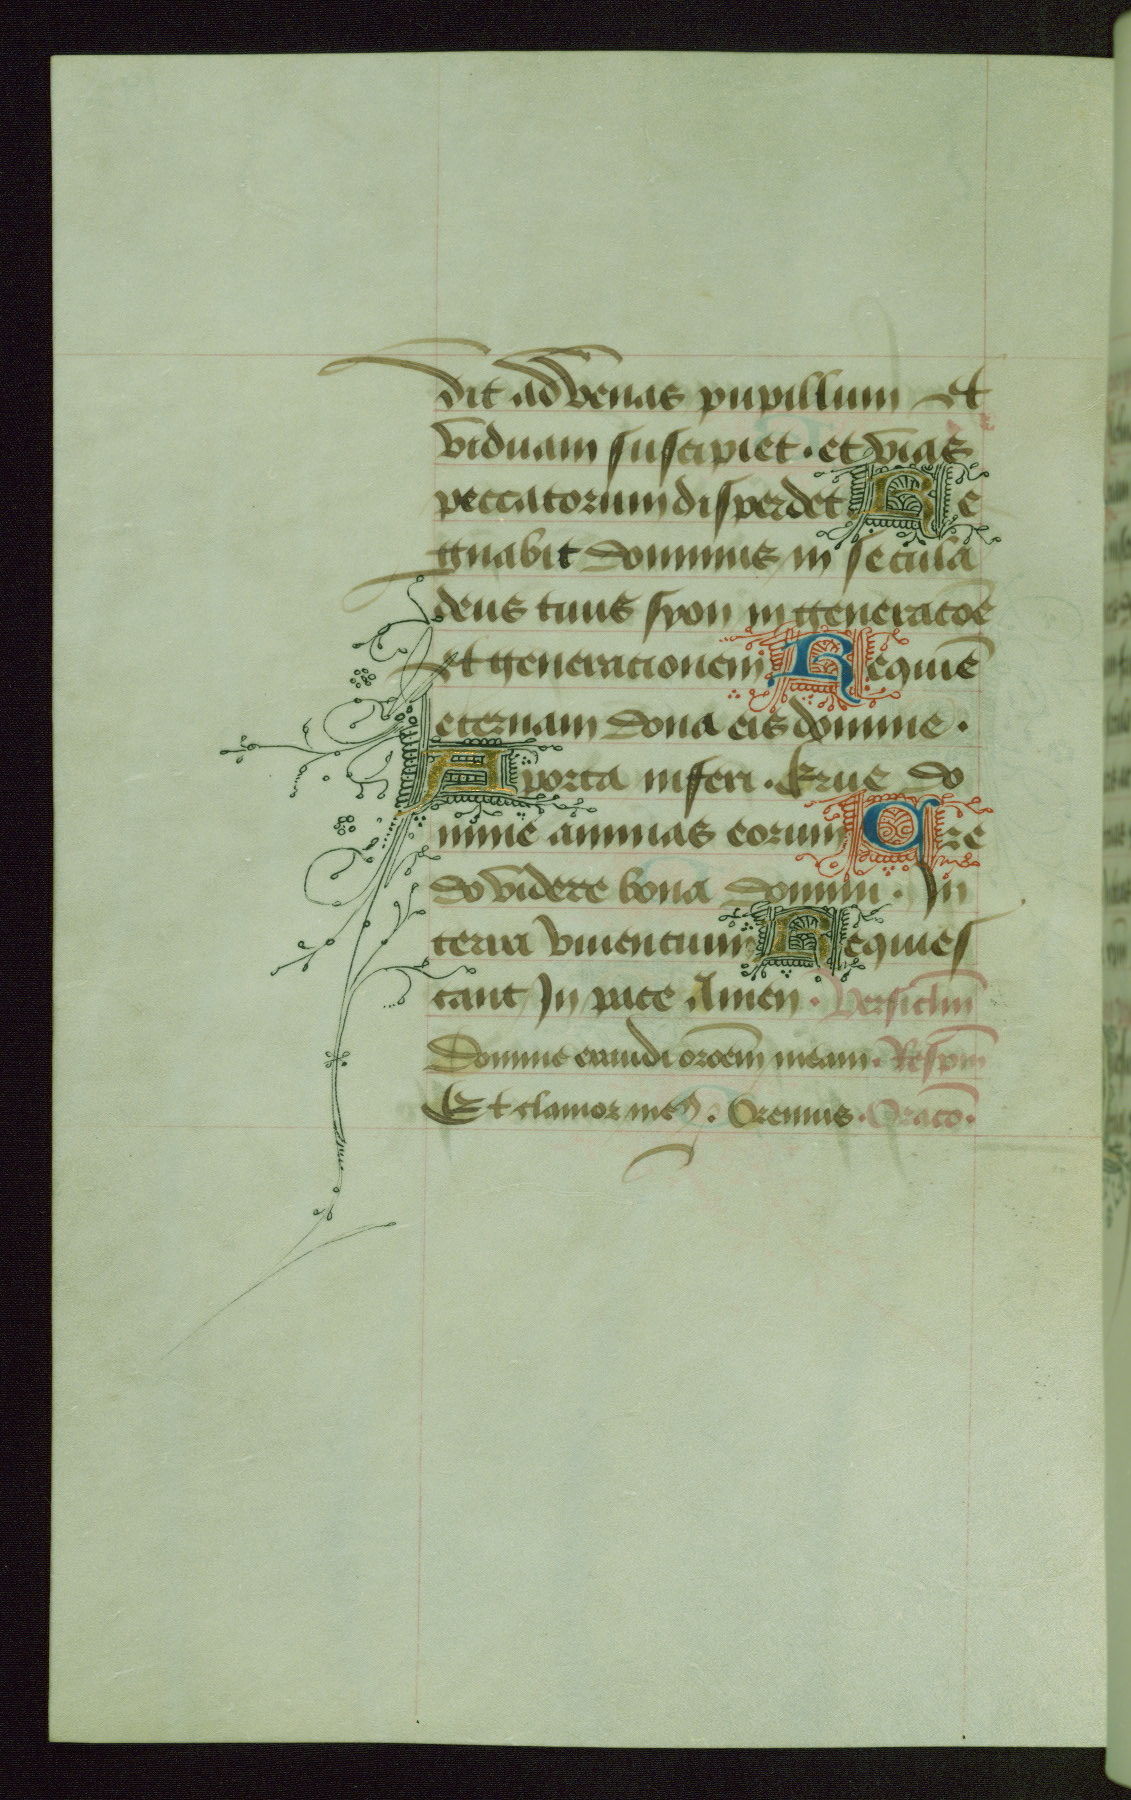 dit advenas pupillum et
viduam suscipiet · et vias
peccatorum disperdet Re
gnabit dominus in secula
deus tuus syon in generacōē
et generacionem Requiē
eternam dona eis domine ·
A porta inferi · Erue do
mine animas eorum Cre
do videre bona domini · In
terra viventium Requies
cant In pace Amen · Versiclm̄
Domine exaudi orōem meam · Respm̄
Et clamor meꝰ · Oremus · Oracō ·